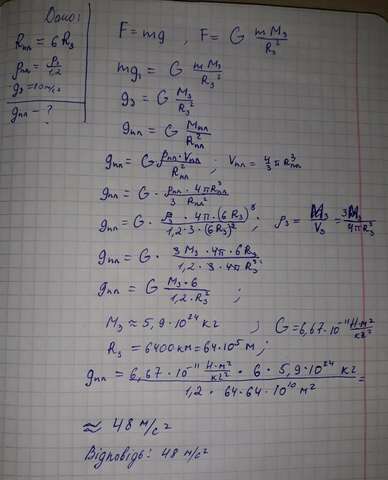 Дано:
Rпл = 6 Rз
ρпл = ρз/1,2
gз = 10 м/с²
gпл - ?
F = mg , F = G mMз/Rз²
mgз = G mMз/Rз²
gз = G Mз/Rз²
gпл = G Mпл/Rпл²
gпл = G ρпл·Vпл/Rпл² ; Vпл = 4/3 πRпл³
gпл = G · ρпл·4πRпл³/3 Rпл²
gпл = G · ρз·4π·(6Rз)³/1,2·3·(6Rз)² ; ρз = Mз/Vз = 3Mз/4πRз³
gпл = G · 3Mз·4π·6Rз/1,2·3·4πRз³ ;
gпл = G Mз·6/1,2·Rз² ;
Mз ≈ 5,9·10²⁴ кг ; G = 6,67·10⁻¹¹ Н·м²/кг²
Rз = 6400 км = 64·10⁵ м ;
gпл = 6,67·10⁻¹¹ Н·м²/кг² · 6 · 5,9·10²⁴ кг/1,2 · 64·64·10¹⁰ м² =
≈ 48 м/с²
Відповідь: 48 м/с²